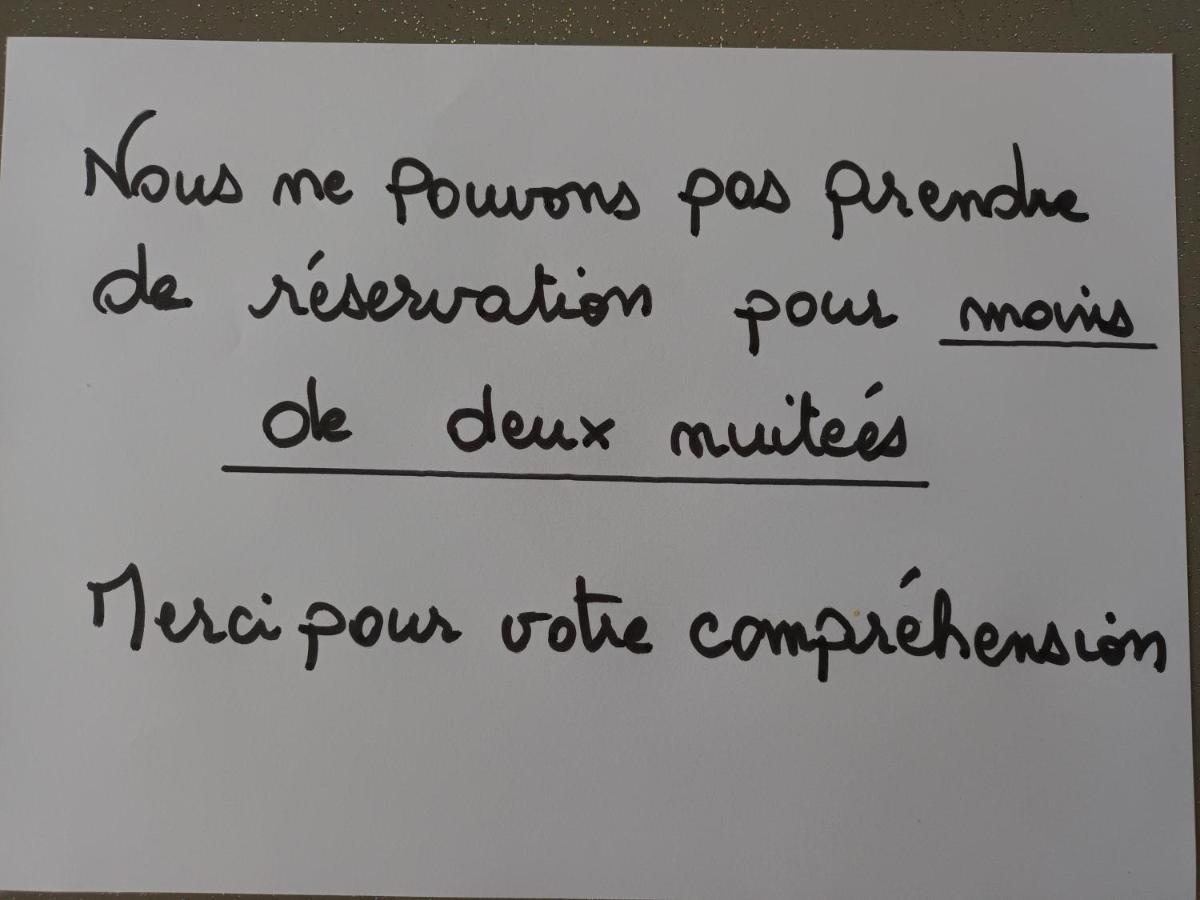 Nous ne pouvons pas prendre
de réservation pour moins
de deux nuiteés
Merci pour votre compréhension